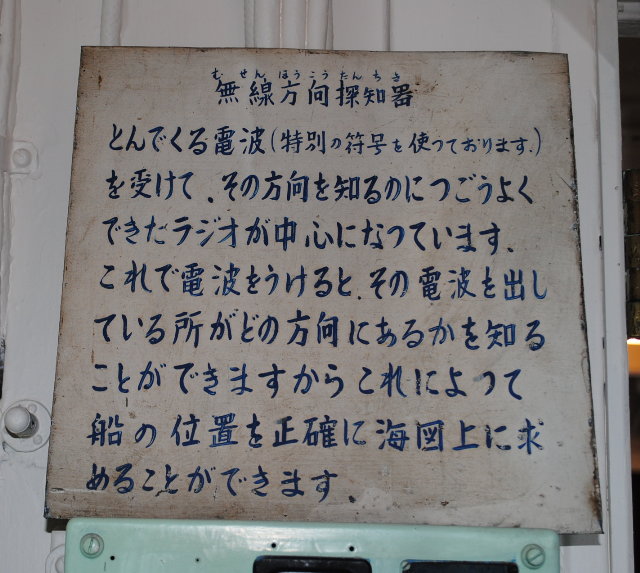 むせんほうこうたんちき
無線方向探知器
とんでくる電波(特別の符号を使つております.)
を受けて、その方向を知るのにつごうよく
できたラジオが中心になつています、
これで電波をうけると、その電波を出し
ている所がどの方向にあるかを知る
ことができますからこれによつて
船の位置を正確に海図上に求
めることができます、